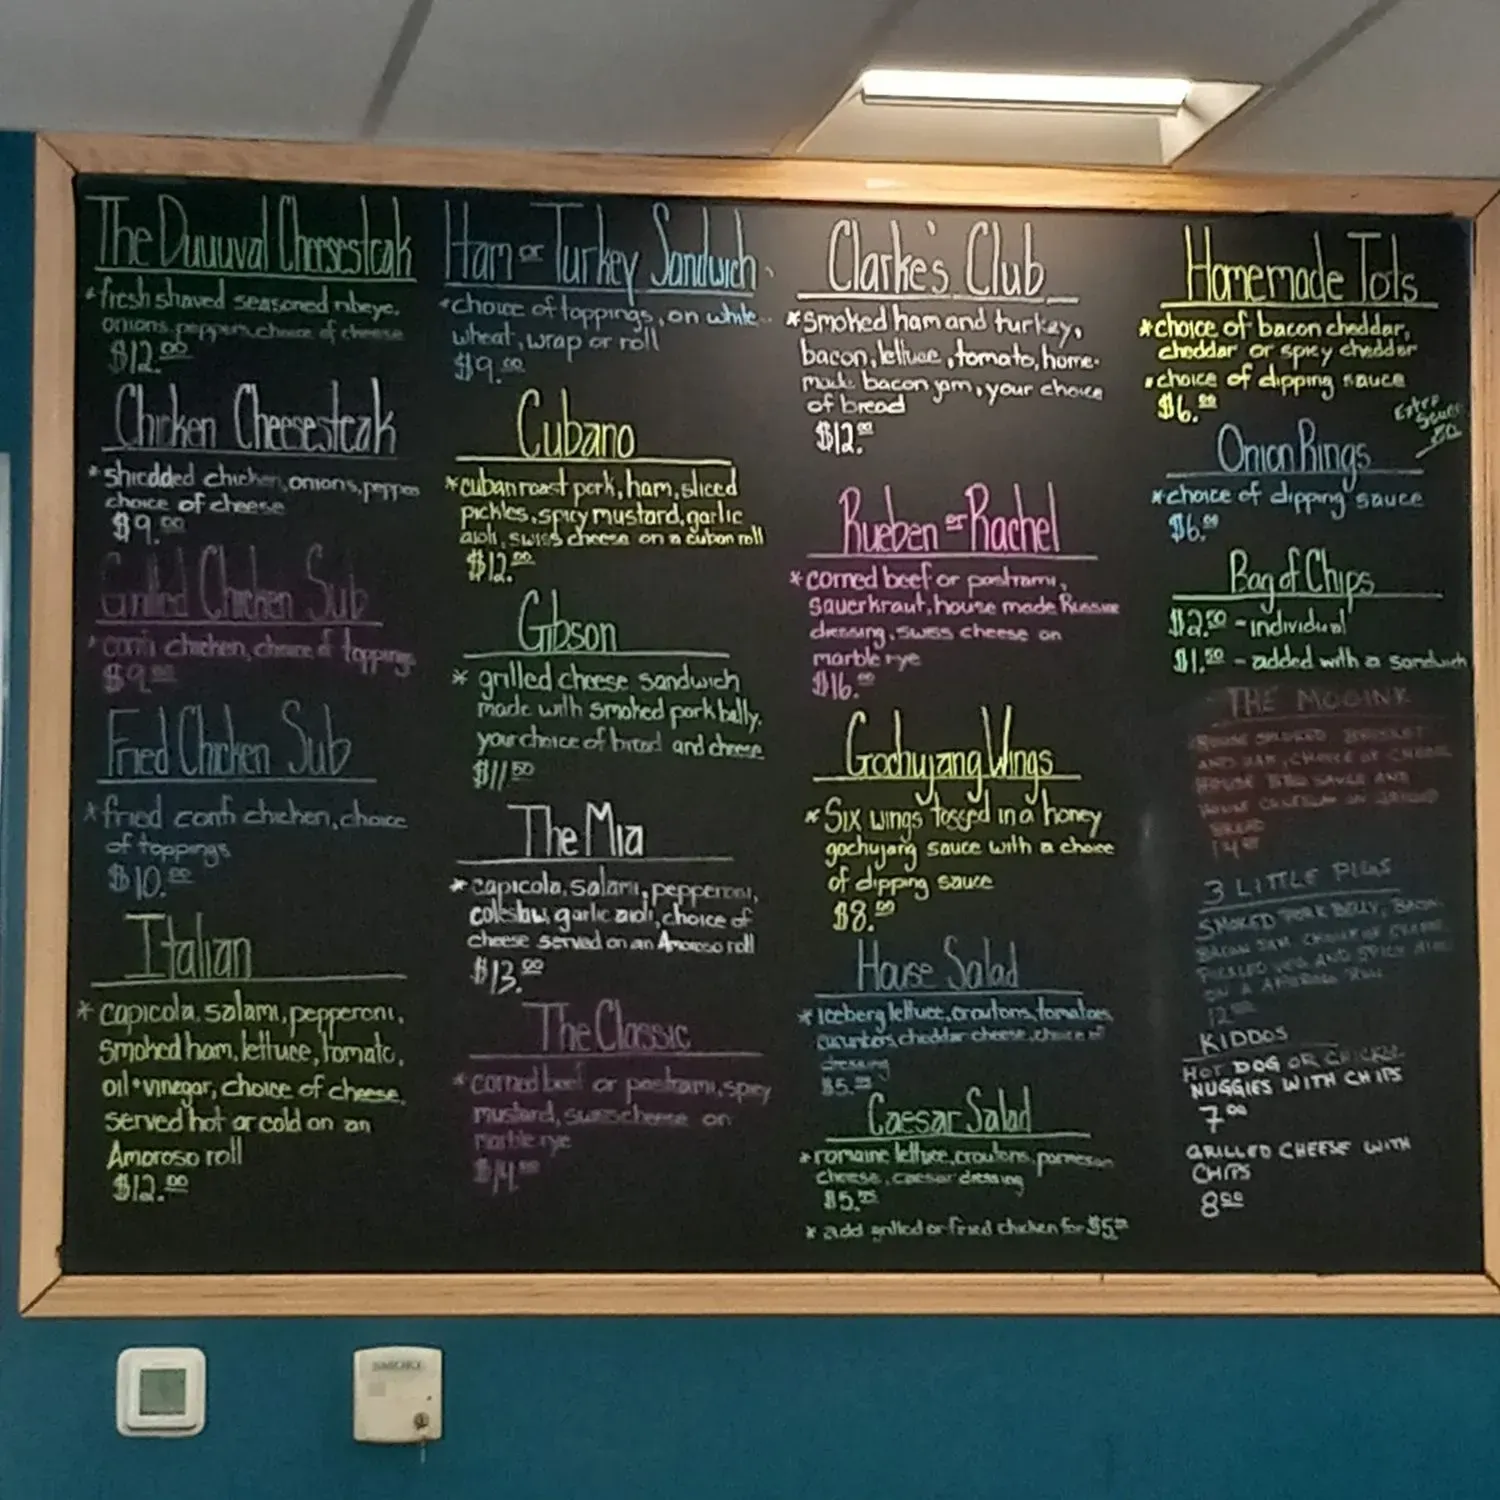 The Duuuval Cheesesteak
*fresh shaved seasoned ribeye,
onions, peppers, choice of cheese
$12.00
Chicken Cheesesteak
*shredded chicken, onions, peppers
choice of cheese
$9.00
Grilled Chicken Sub
*confi chicken, choice of toppings
$9.00
Fried Chicken Sub
*fried confi chicken, choice
of toppings
$10.00
Italian
*capicola, salami, pepperoni,
smoked ham, lettuce, tomato,
oil + vinegar, choice of cheese,
served hot or cold on an
Amoroso roll
$12.00
Ham or Turkey Sandwich
*choice of toppings, on white
wheat, wrap or roll
$9.00
Cubano
*cuban roast pork, ham, sliced
pickles, spicy mustard, garlic
aioli, swiss cheese on a cuban roll
$12.00
Gibson
* grilled cheese sandwich
made with smoked pork belly,
your choice of bread and cheese
$11.50
The Mia
*capicola, salami, pepperoni,
coleslaw, garlic aioli, choice of
cheese served on an Amoroso roll
$13.00
The Classic
*corned beef or pastrami, spicy
mustard, swiss cheese on
marble rye
$14.00
Clarke's Club
*smoked ham and turkey,
bacon, lettuce, tomato, home-
made bacon jam, your choice
of bread
$12.00
Rueben or Rachel
*corned beef or pastrami,
sauerkraut, house made Russian
dressing, swiss cheese on
marble rye
$16.00
Gochujang Wings
*Six wings tossed in a honey
gochujang sauce with a choice
of dipping sauce
$8.00
House Salad
*Iceberg lettuce, croutons, tomatoes,
cucumbers, cheddar cheese, choice of
dressing
$5.00
Caesar Salad
*romaine lettuce, croutons, parmesan
cheese, caesar dressing
$5.00
* add grilled or fried chicken for $5.00
Homemade Tots
*choice of bacon cheddar,
cheddar or spicy cheddar
*choice of dipping sauce
$6.00
Extra
Sauce
Onion Rings
*choice of dipping sauce
$6.00
Bag of Chips
$2.50 - individual
$1.50 - added with a sandwich
THE MOGINK
HOUSE SMOKED BRISKET
AND HAM, CHOICE OF CHEESE
HOUSE BBQ SAUCE AND
HOUSE COLESLAW ON
BREAD
14.00
3 LITTLE PIGS
SMOKED PORK BELLY, BACON
BACON JAM, CHOICE OF CHEESE
PICKLED VEG AND SPICY AIOLI
ON A AMOROSO ROLL
12.00
KIDDOS
HOT DOG OR CHICKEN
NUGGIES WITH CHIPS
7.00
GRILLED CHEESE WITH
CHIPS
8.00
SMOKE